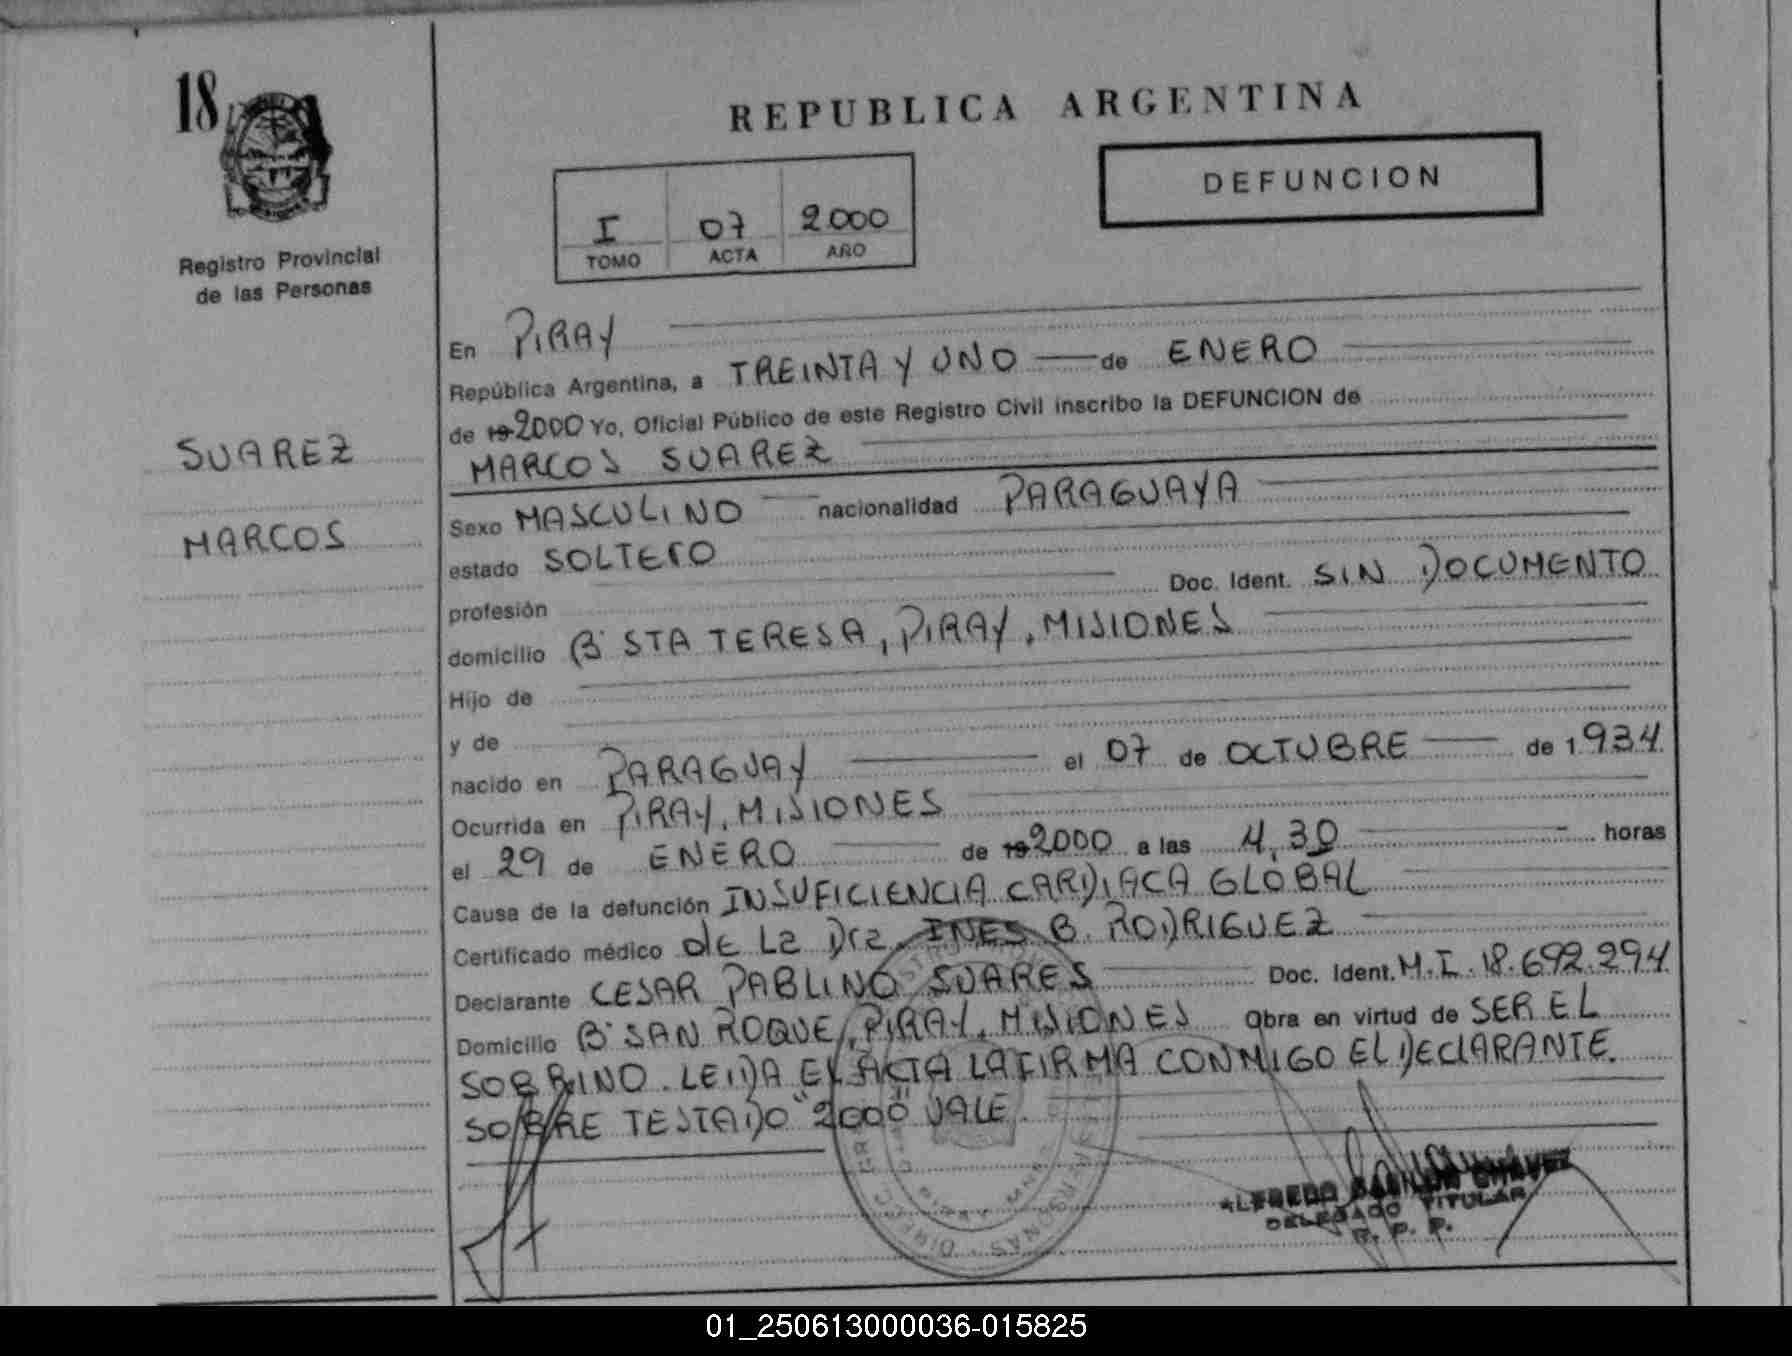 18
Registro Provincial
de las Personas
SUAREZ
MARCOS
REPUBLICA ARGENTINA
DEFUNCION
I 07 2.000
TOMO ACTA AÑO
En PIRAY
República Argentina, a TREINTA Y UNO de ENERO
de 19 2000 Yo, Oficial Público de este Registro Civil inscribo la DEFUNCION de
MARCOS SUAREZ
Sexo MASCULINO nacionalidad PARAGUAYA
estado SOLTERO
profesión Doc. Ident. SIN DOCUMENTO
domicilio B° STA TERESA, PIRAY, MISIONES
Hijo de
y de
nacido en PARAGUAY el 07 de OCTUBRE de 1.934
Ocurrida en PIRAY, MISIONES
el 29 de ENERO de 19 2000 a las 4,30 horas
Causa de la defunción INSUFICIENCIA CARDIACA GLOBAL
Certificado médico de La Dra INES B. RODRIGUEZ
Declarante CESAR PABLINO SUARES Doc. Ident. M.I. 18.692.294
Domicilio B° SAN ROQUE, PIRAY, MISIONES Obra en virtud de SER EL
SOBRINO. LEIDA EL ACTA LA FIRMA CONMIGO EL DECLARANTE.
SOBRE TESTADO "2000" VALE
ALFREDO CHAVEZ
DELEGADO TITULAR
R. P. P.
01_250613000036-015825